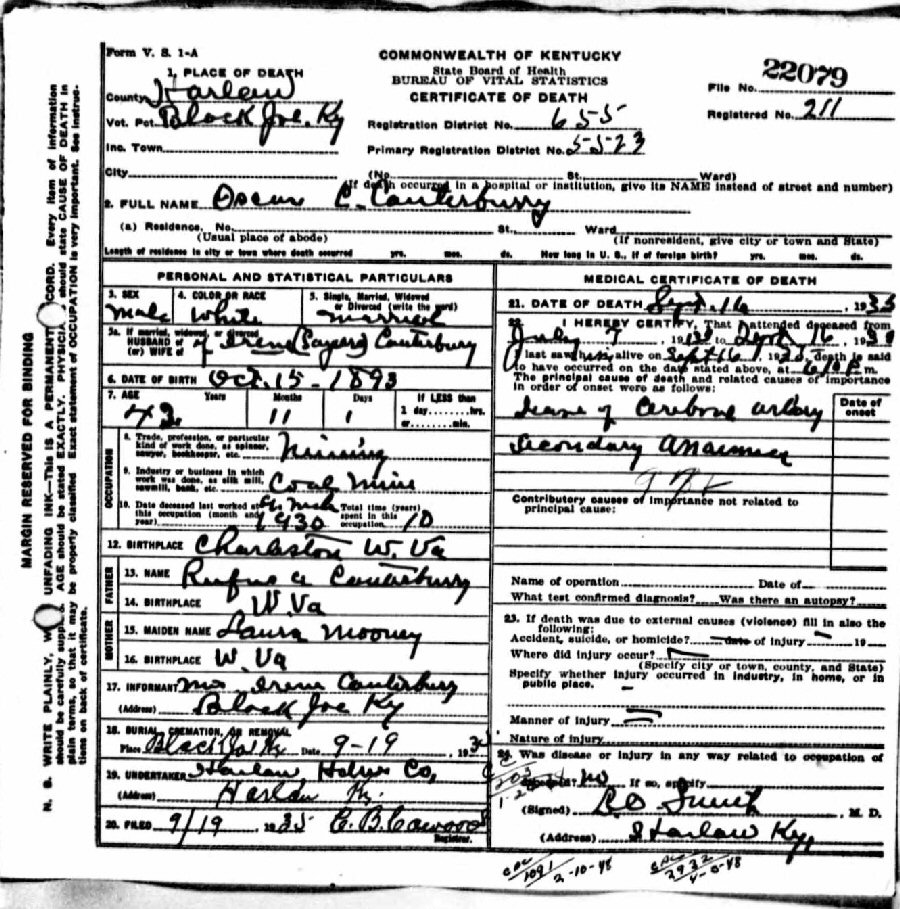 Form V. S. 1-A
COMMONWEALTH OF KENTUCKY
State Board of Health
BUREAU OF VITAL STATISTICS
CERTIFICATE OF DEATH
File No. 22079
Registered No. 211
1. PLACE OF DEATH
County Harlan
Vot. Pct. Black Joe, Ky
Registration District No. 655
Inc. Town
Primary Registration District No. 5523
City (No. St. Ward)
(If death occurred in a hospital or institution, give its NAME instead of street and number)
2. FULL NAME Oscar C. Canterbury
(a) Residence, No. St., Ward
(Usual place of abode) (If nonresident, give city or town and State)
Length of residence in city or town where death occurred yrs. mos. ds. How long in U. S., if of foreign birth? yrs. mos. ds.
PERSONAL AND STATISTICAL PARTICULARS
3. SEX 4. COLOR OR RACE 5. Single, Married, Widowed
or Divorced (write the word)
Male White Married
5a. If married, widowed, or divorced
HUSBAND of
(or) WIFE of Irene (Sayers) Canterbury
6. DATE OF BIRTH Oct. 15 - 1893
7. AGE Years Months Days If LESS than
1 day hrs.
or min.
11 1
OCCUPATION
8. Trade, profession, or particular
kind of work done, as spinner,
sawyer, bookkeeper, etc. Mining
9. Industry or business in which
work was done, as silk mill,
sawmill, bank, etc. Coal Mine
10. Date deceased last worked at
this occupation (month and
year) 1930
Total time (years)
spent in this
occupation 10
12. BIRTHPLACE Charleston W. Va
FATHER
13. NAME Rufus A Canterbury
14. BIRTHPLACE W. Va
MOTHER
15. MAIDEN NAME Laura Mooney
16. BIRTHPLACE W. Va
17. INFORMANT Mrs Irene Canterbury
(Address) Black Joe Ky
18. BURIAL, CREMATION, OR REMOVAL
Place Black Joe Ky Date 9-19, 193
19. UNDERTAKER Harlan Co,
(Address) Harlan Ky.
20. FILED 9/19 1935 C. B. Cawood
Registrar.
MEDICAL CERTIFICATE OF DEATH
21. DATE OF DEATH Sept. 16, 1935
22. I HEREBY CERTIFY, That I attended deceased from
July 9, 193 to Sept 16, 193
I last saw him alive on Sept 16, 193, death is said
to have occurred on the date stated above, at 610 P. m.
The principal cause of death and related causes of importance
in order of onset were as follows:
Date of
onset
of
Secondary
Contributory causes of importance not related to
principal cause:
Name of operation Date of
What test confirmed diagnosis? Was there an autopsy?
23. If death was due to external causes (violence) fill in also the
following:
Accident, suicide, or homicide? date of injury 19
Where did injury occur?
(Specify city or town, county, and State)
Specify whether injury occurred in industry, in home, or in
public place.
Manner of injury
Nature of injury
24. Was disease or injury in any way related to occupation of
deceased? no If so, specify
(Signed) Smith, M. D.
(Address) Harlan Ky,
1091 2-10-48
2932 4-0-48
MARGIN RESERVED FOR BINDING
N. B. WRITE PLAINLY, UNFADING INK—This is a PERMANENT RECORD. Every item of information
should be carefully supplied. AGE should be stated EXACTLY. PHYSICIANS should state CAUSE OF DEATH in
plain terms, so that it may be properly classified. Exact statement of OCCUPATION is very important. See instruc-
tions on back of certificate.